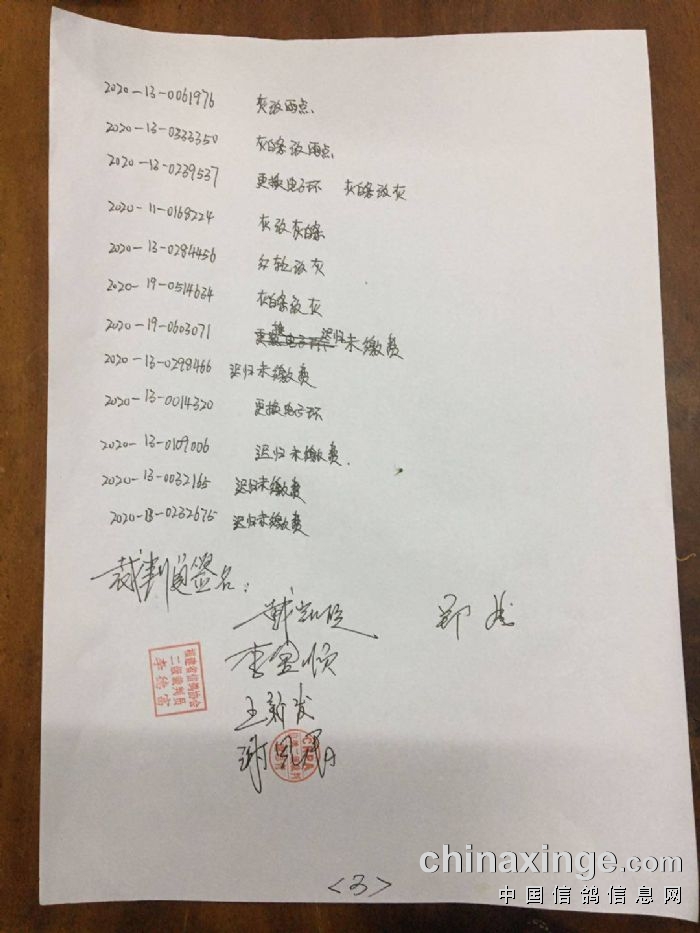 2020-13-0061976 灰改雨点.
2020-13-0333350 灰白条改雨点.
2020-13-0239537 更换电子环 灰白条改灰
2020-11-0168224 灰改灰白条
2020-13-0284456 红轮改灰
2020-19-0514634 灰白条改灰
2020-19-0603071 更换电子环 迟归未缴费
2020-13-0298466 迟归未缴费
2020-13-0014320 更换电子环
2020-13-0109006 迟归未缴费.
2020-13-0032165 迟归未缴费
2020-13-0232675 迟归未缴费
裁判员签名:
郑
李金顺
福建省信鸽协会
二级裁判员
李德富
王新发
谢
CRPA
<3>
chinaxinge.com
中国信鸽信息网